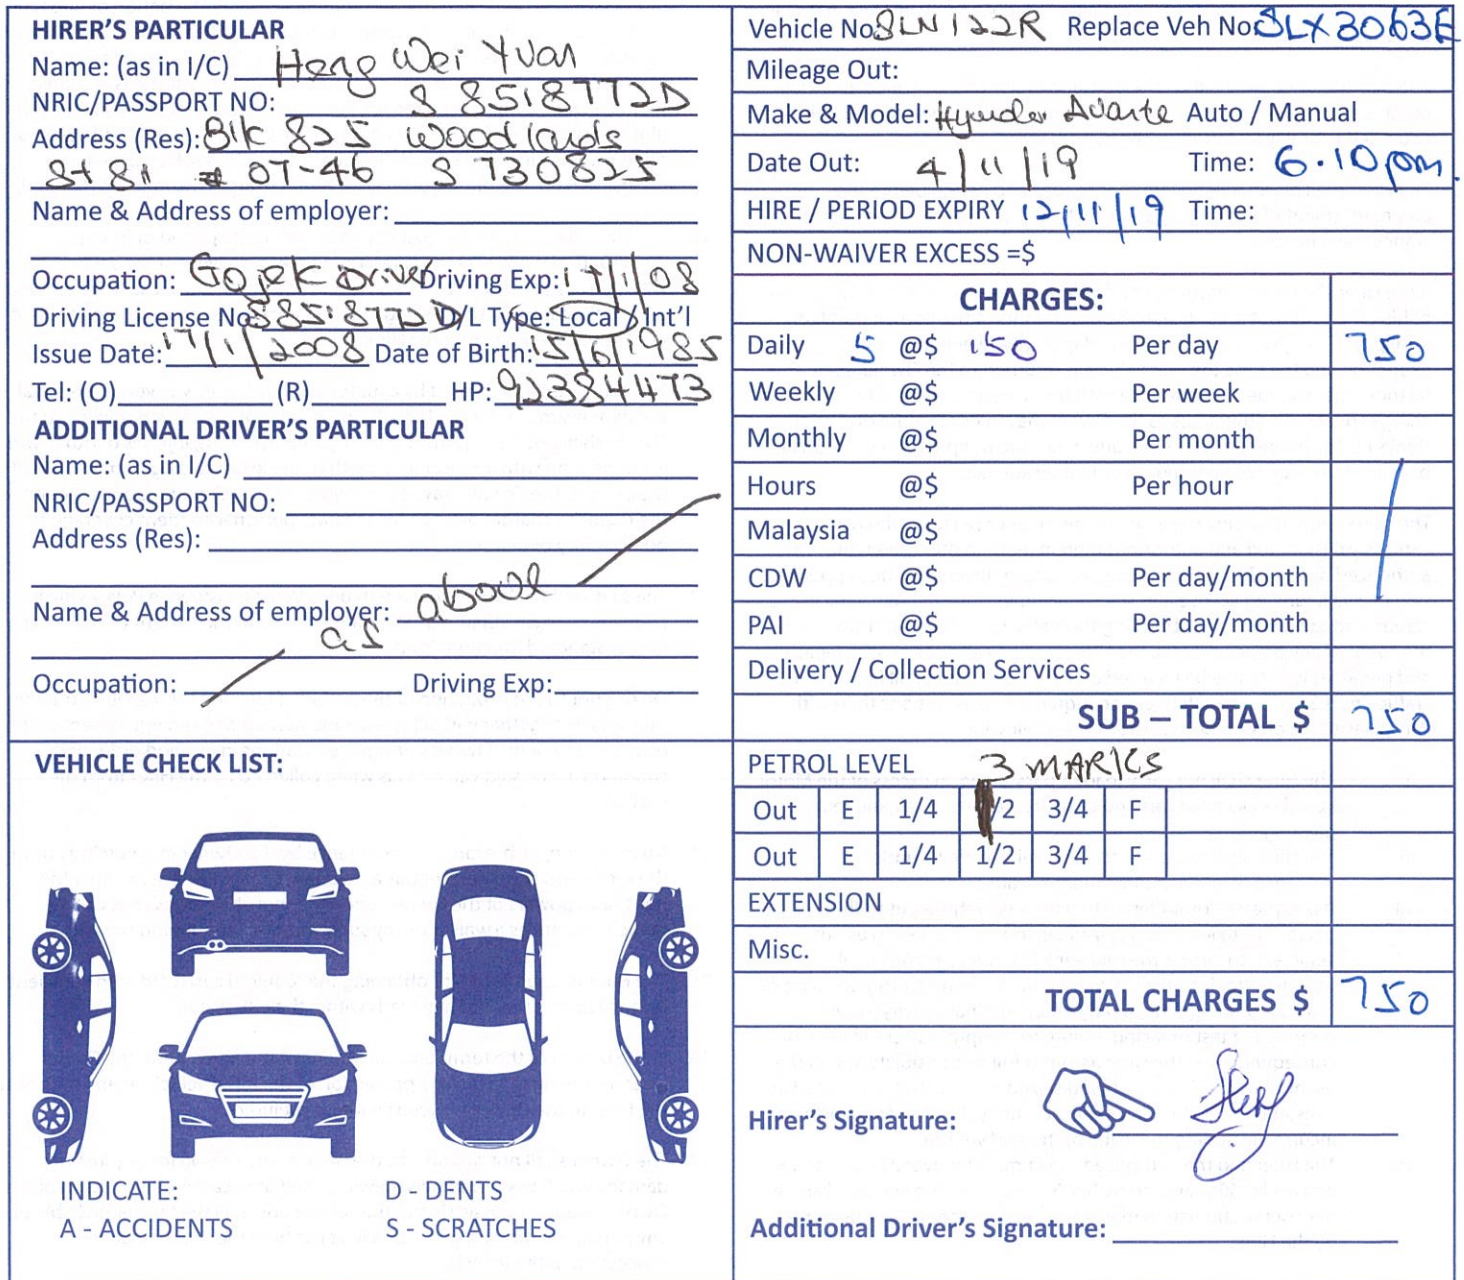 HIRER'S PARTICULAR
Name: (as in I/C) Heng Wei Yuan
NRIC/PASSPORT NO: S 8518772D
Address (Res): Blk 825 Woodlands
St 81 # 07-46 S 730825
Name & Address of employer:
Occupation: Gojek Driver Driving Exp: 17/1/08
Driving License No: S8518772D D/L Type: Local / Int'l
Issue Date: 17/1/2008 Date of Birth: 15/6/1985
Tel: (O) (R) HP: 92384473
ADDITIONAL DRIVER'S PARTICULAR
Name: (as in I/C)
NRIC/PASSPORT NO:
Address (Res):
Name & Address of employer: abool
as
Occupation: Driving Exp:
VEHICLE CHECK LIST:
INDICATE: D - DENTS
A - ACCIDENTS S - SCRATCHES
Vehicle No SLN122R Replace Veh No: SLX3063E
Mileage Out:
Make & Model: Hyundai Avante Auto / Manual
Date Out: 4/11/19 Time: 6.10pm.
HIRE / PERIOD EXPIRY 12/11/19 Time:
NON-WAIVER EXCESS =$
CHARGES:
Daily 5 @$ 150 Per day 750
Weekly @$ Per week
Monthly @$ Per month
Hours @$ Per hour
Malaysia @$
CDW @$ Per day/month
PAI @$ Per day/month
Delivery / Collection Services
SUB – TOTAL $ 750
PETROL LEVEL 3 MARKS
Out E 1/4 1/2 3/4 F
Out E 1/4 1/2 3/4 F
EXTENSION
Misc.
TOTAL CHARGES $ 750
Hirer's Signature:
Additional Driver's Signature: